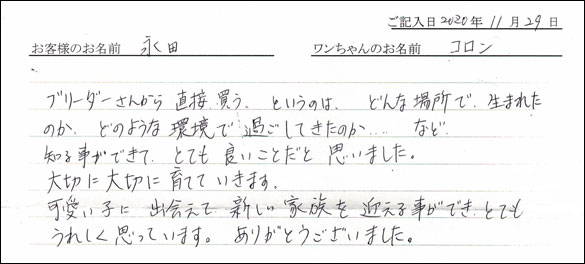 ご記入日 2020年 11月 29日
お客様のお名前 永田 ワンちゃんのお名前 コロン
ブリーダーさんから 直接 買う、というのは、どんな場所で、生まれた
のか、どのような 環境で 過ごしてきたのか… など
知る事ができて、とても 良いことだと 思いました。
大切に大切に 育てて いきます。
可愛い子に 出会えて 新しい 家族を 迎える事ができ、とても
うれしく思っています。ありがとうございました。